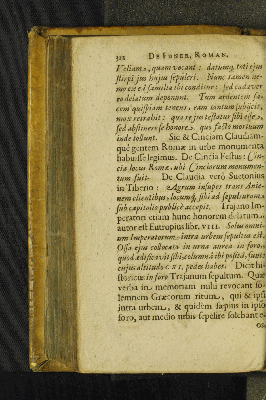 312 DE FUNER. ROMAN.
Veliam, quam vocant: datumq; toti ejus
stirpi jus hujus sepulcri. Nunc tamen ne-
mo ex ea familia ibi conditur: sed cadaver
eo delatum deponunt. Tum ardentem fa-
cem quispiam tenens, eam tantum subjicit,
mox retrahit: qua re jus testatur sibi esse,
sed abstinere se honore. quo facto mortuum
inde tollunt. Sic & Cinciam Claudiam-
que gentem Romæ in urbe monumenta
habuisse legimus. De Cincia Festus: Cin-
cia locus Romæ, ubi Cinciorum monumen-
tum fuit. De Claudia verò Suetonius
in Tiberio: Agrum insuper trans Anie-
nem clientibus, locumq; sibi ad sepulturam
sub capitolio publicè accepit. Trajano Im-
peratori etiam hunc honorem delatum
autor est Eutropius lib. VIII. Solus omni-
um Imperatorum intra urbem sepultus est.
Ossa ejus collocata in urna aurea in foro,
quod ædificavit sub columna ibi posita sunt,
cujus altitudo CXL pedes habet. Dicit hi-
storicus in foro Trajanum sepultum. Quæ
verba in memoriam mihi revocant so-
lemnem Græcorum ritum, qui & ipsi
intra urbem, & quidem sæpius in ipso
foro, aut medio urbis sepelire solebant e-
os